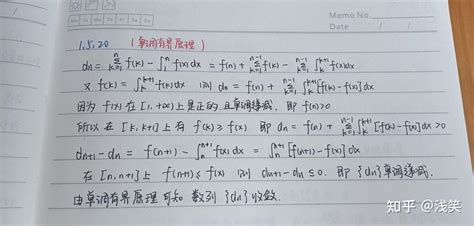 Memo No.
Mo Tu We Th Fr Sa Su
Date
1.5.20 (单调有界原理)
dn = ∑_{k=1}^{n} f(k) - ∫_1^n f(x)dx = f(n) + ∑_{k=1}^{n-1} f(k) - ∑_{k=1}^{n-1} ∫_k^{k+1} f(x)dx
又 f(k) = ∫_k^{k+1} f(k)dx 则 dn = f(n) + ∑_{k=1}^{n-1} ∫_k^{k+1} [f(k)-f(x)]dx
因为 f(x) 在 [1,+∞) 上是正的, 且单调递减, 即 f(n)>0
所以 在 [k,k+1] 上有 f(k)≥f(x) 即 dn = f(n) + ∑_{k=1}^{n-1} ∫_k^{k+1} [f(k)-f(x)]dx >0
dn+1 - dn = f(n+1) - ∫_n^{n+1} f(x)dx = ∫_n^{n+1} [f(n+1)-f(x)]dx
在 [n,n+1] 上 f(n+1)≤f(x) 则 dn+1-dn≤0. 即 {dn} 单调递减.
由单调有界原理可知 数列 {dn} 收敛.
知乎 @浅笑